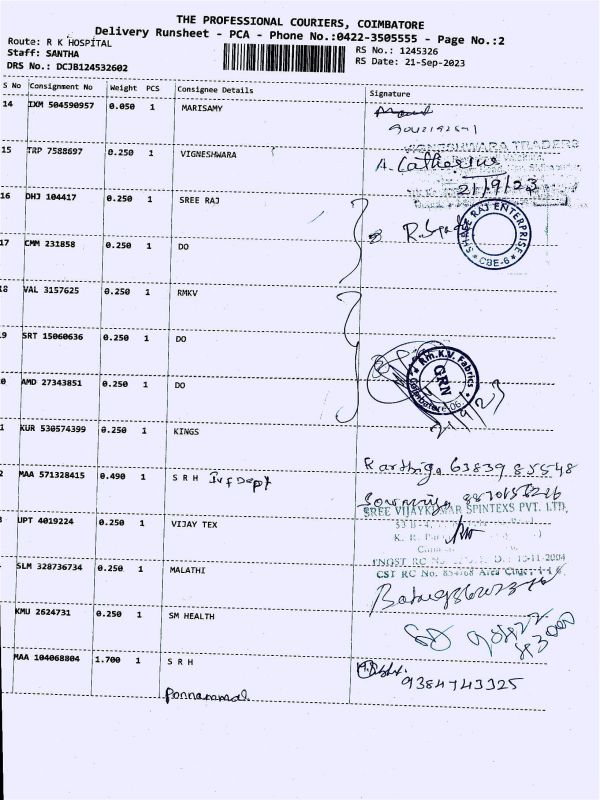 THE PROFESSIONAL COURIERS, COIMBATORE
Delivery Runsheet - PCA - Phone No.:0422-3505555 - Page No.:2
Route: R K HOSPITAL
Staff: SANTHA
DRS No.: DCJB124532602
RS No.: 1245326
RS Date: 21-Sep-2023
S No Consignment No Weight PCS Consignee Details Signature
14 IXM 504590957 0.050 1 MARISAMY
15 TRP 7588697 0.250 1 VIGNESHWARA
VIGNESHWARA TRADERS
A. Catherine
21/9/23
16 DHJ 104417 0.250 1 SREE RAJ
SHREE RAJ ENTERPRISE
* CBE-6 *
17 CMM 231858 0.250 1 DO
18 VAL 3157625 0.250 1 RMKV
9 SRT 15060636 0.250 1 DO
Rm.K.V. Fabrics
GRN
Coimbatore 06.
0 AMD 27343851 0.250 1 DO
21/9/23
1 KUR 530574399 0.250 1 KINGS
Karthiga 63839 85548
2 MAA 571328415 0.490 1 S R H Ivf Dept
Sowmiya
SREE VIJAYKUMAR SPINTEXS PVT. LTD.
UPT 4019224 0.250 1 VIJAY TEX
TNGST RC No
13-11-2004
CST RC No.
SLM 328736734 0.250 1 MALATHI
KMU 2624731 0.250 1 SM HEALTH
MAA 104068804 1.700 1 S R H
9384743325
Ponnammal